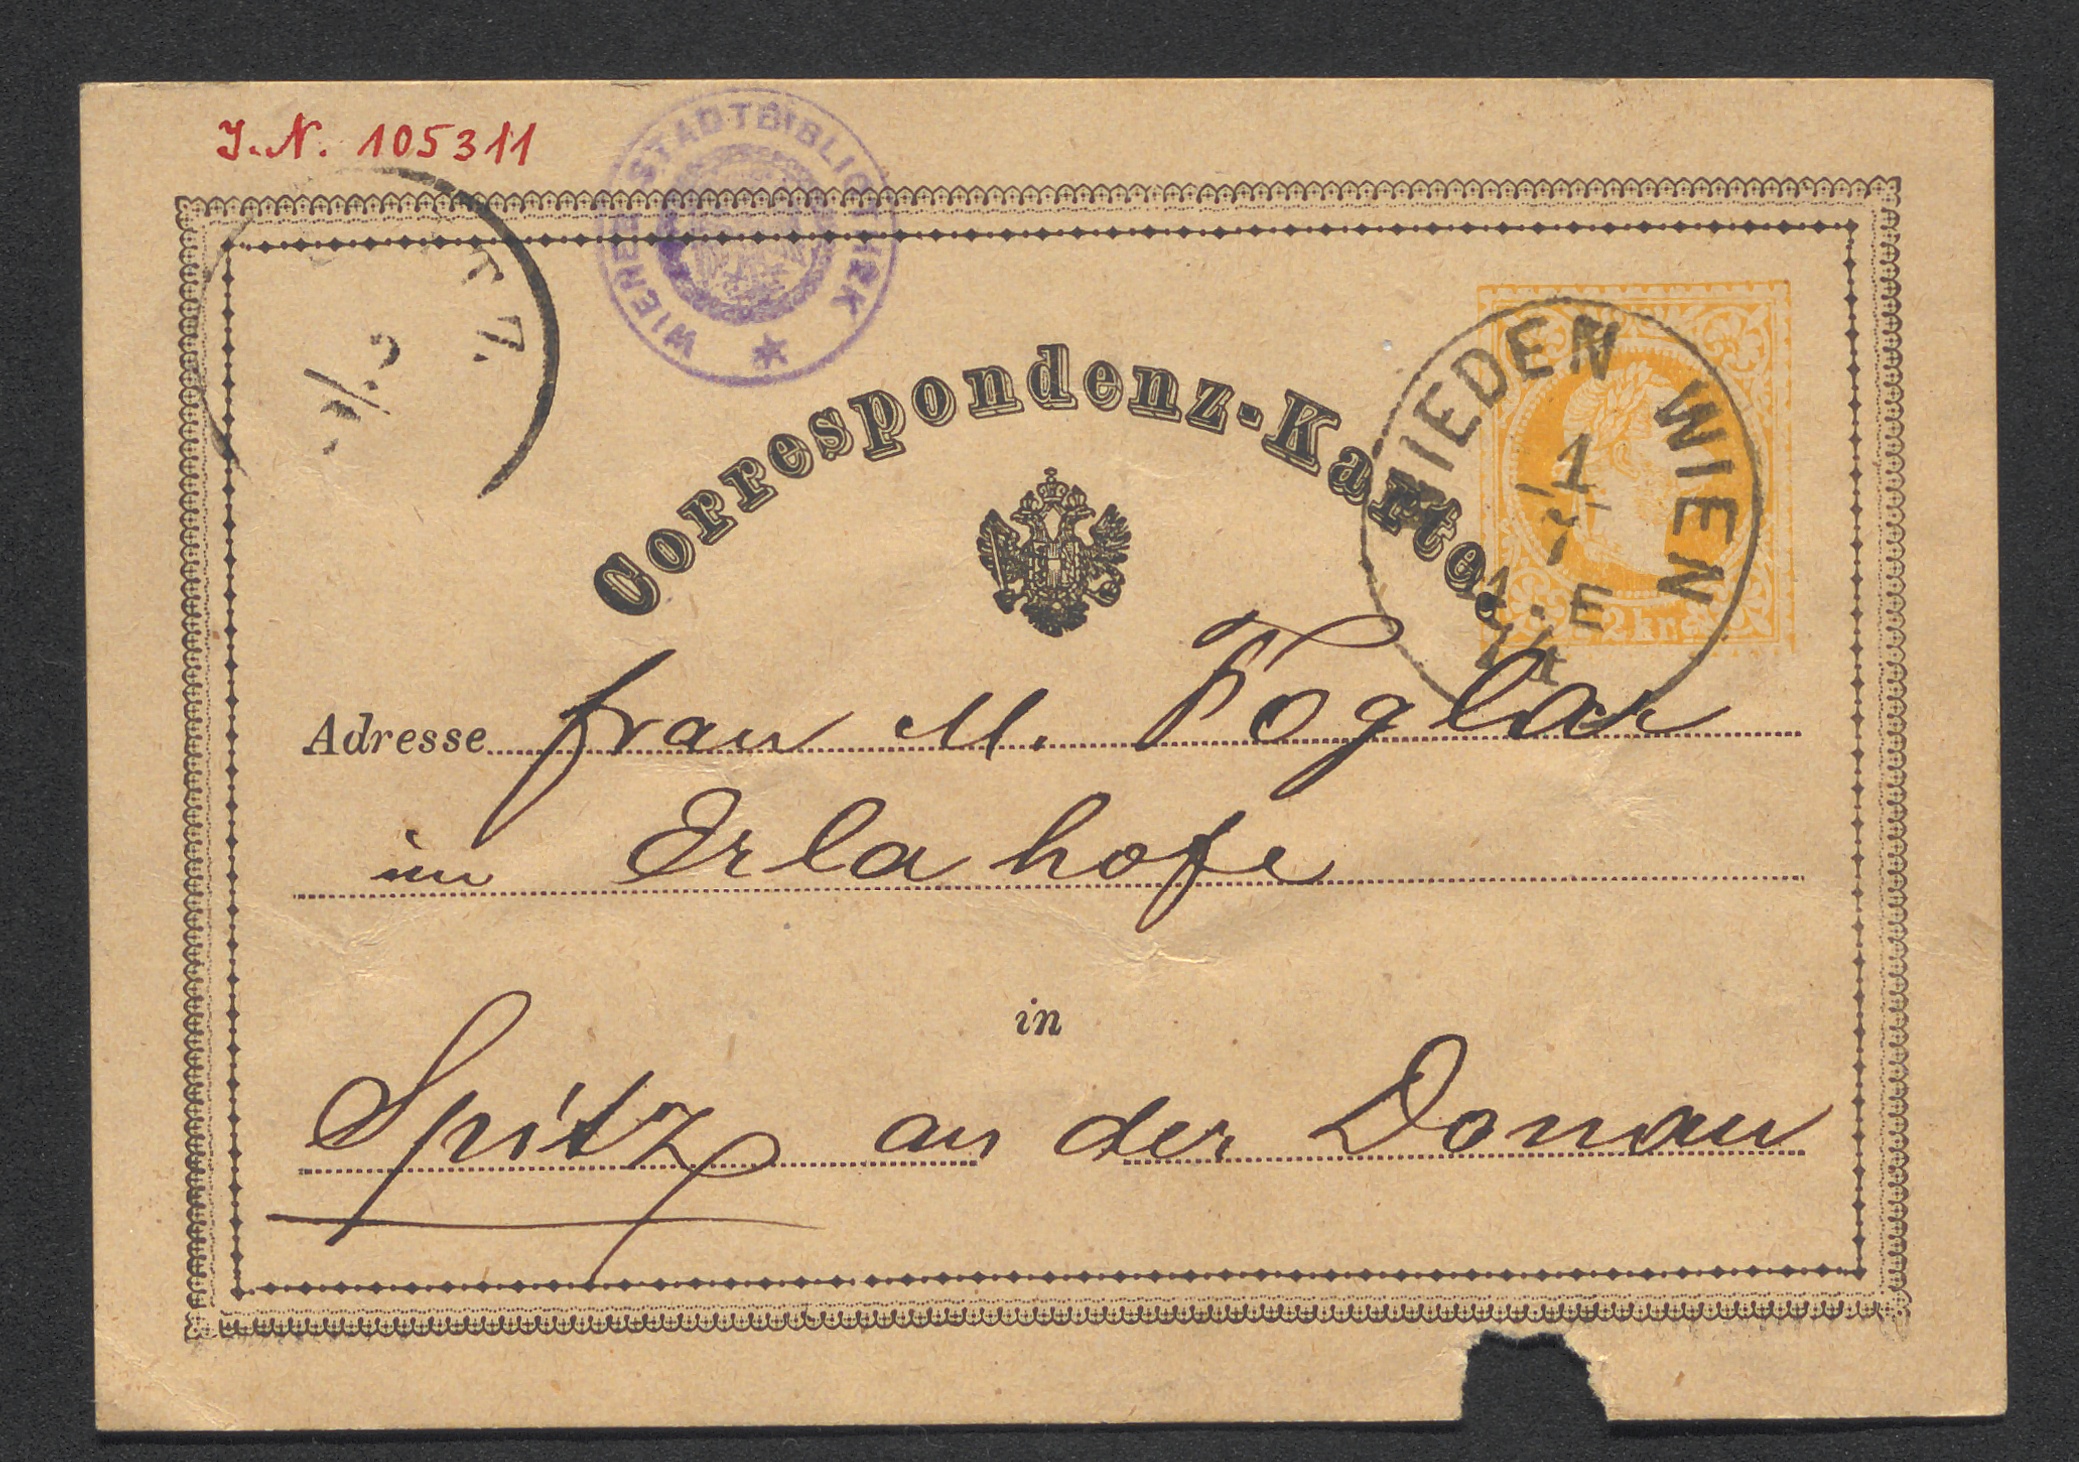 J.N. 105311
WIENER STADTBIBLIOTHEK
Correspondenz-Karte.
WIEDEN WIEN
1
7
E
2 kr.
Adresse frau M. Foglar
im Erlahofe
in
Spitz an der Donau